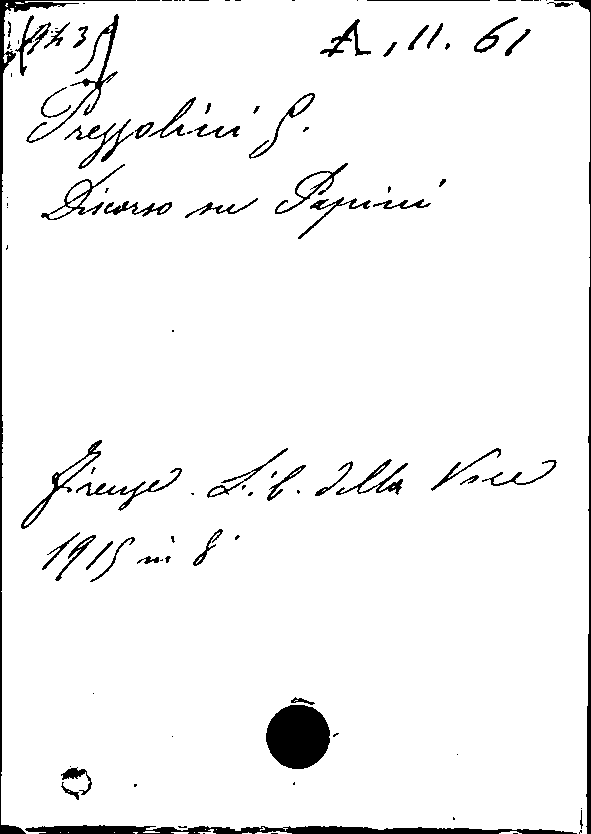 A, 11. 61
Prezzolini G.
Discorso su Papini
Firenze. Lib. della Voce
1915 in 8°